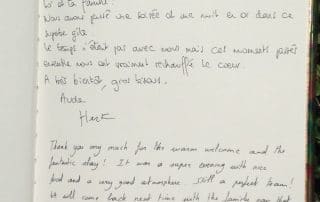 toi et ta famille!
Nous avons passé une soirée et une nuit en or dans ce
superbe gîte
Le temps n'était pas avec nous mais ces moments passés
ensemble nous ont vraiment réchauffé le coeur.
A très bientôt, gros bisous.
Aude
Thank you very much for the warm welcome and the
fantastic stay! It was a super evening with nice
food and a very good atmosphere. Still a perfect team!
We will come back next time with the family now that